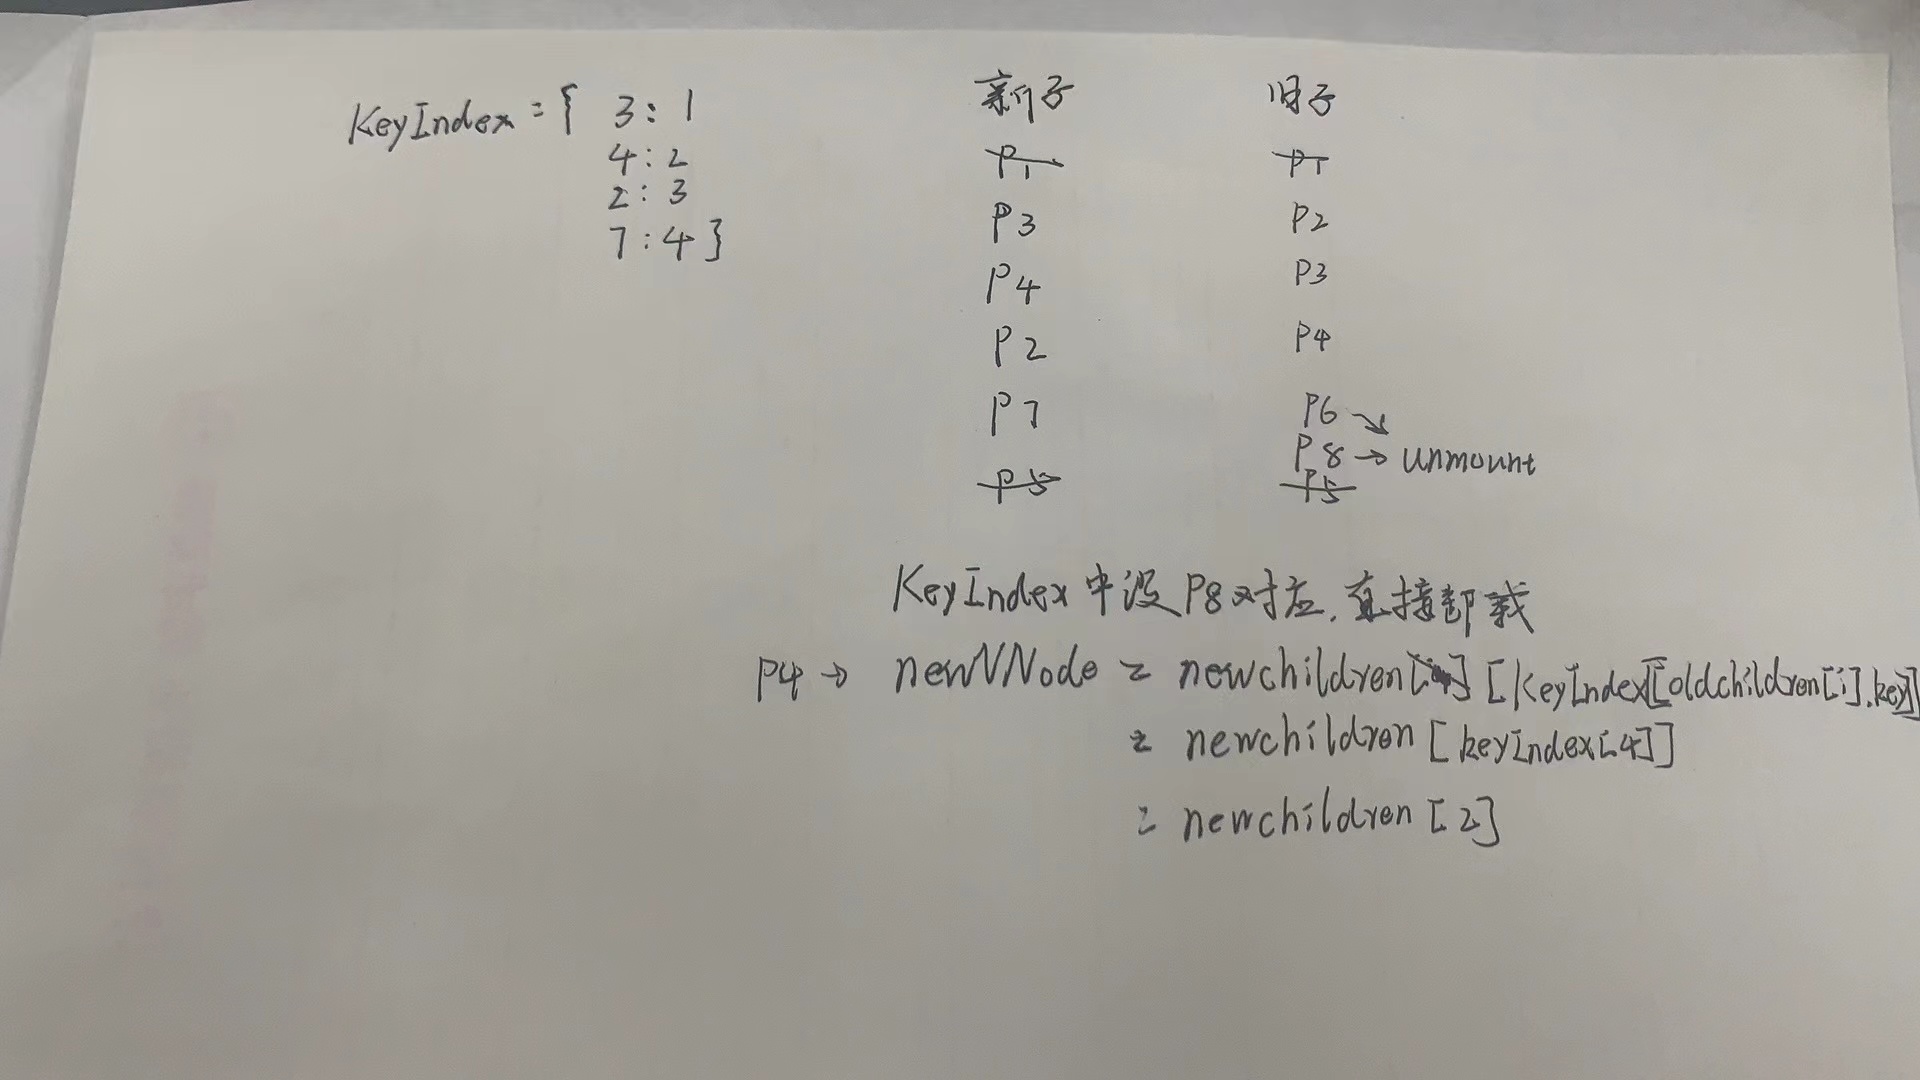 KeyIndex = { 3: 1
4: 2
2: 3
7: 4 }
新子
P1
P3
P4
P2
P7
P5
旧子
P1
P2
P3
P4
P6 ↘
P8 → unmount
P5
KeyIndex 中没 P8 对应, 直接卸载
P4 → newVNode = newchildren [KeyIndex[oldchildren[i].key]]
= newchildren [keyIndex[4]]
= newchildren [2]